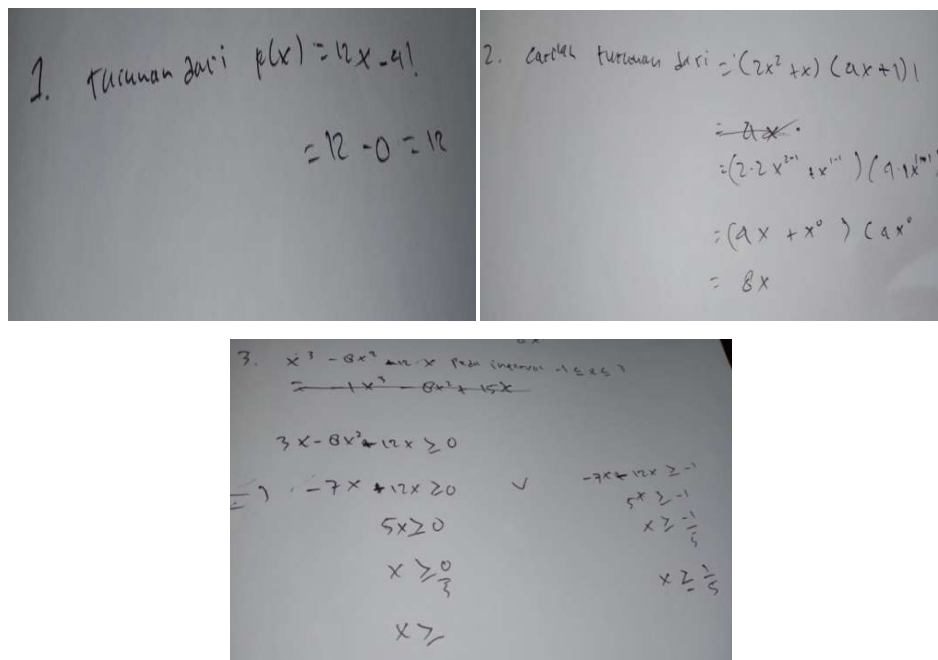 1. turunan dari p(x) = 12x - 4!
= 12 - 0 = 12
2. Carilah turunan dari = (2x² + x) (4x + 1)!
= (2·2x²⁻¹ + x¹⁻¹) (4·1x¹⁻¹)
= (4x + x⁰) (4x⁰
= 8x
3. x³ - 8x² - 12x pada interval -1 ≤ x ≤
3x - 8x² + 12x ≥ 0
-7x + 12x ≥ 0 v -7x + 12x ≥ -1
5x ≥ 0 5x ≥ -1
x ≥ 0/5 x ≥ -1/5
x ≥ x ≥ 1/5